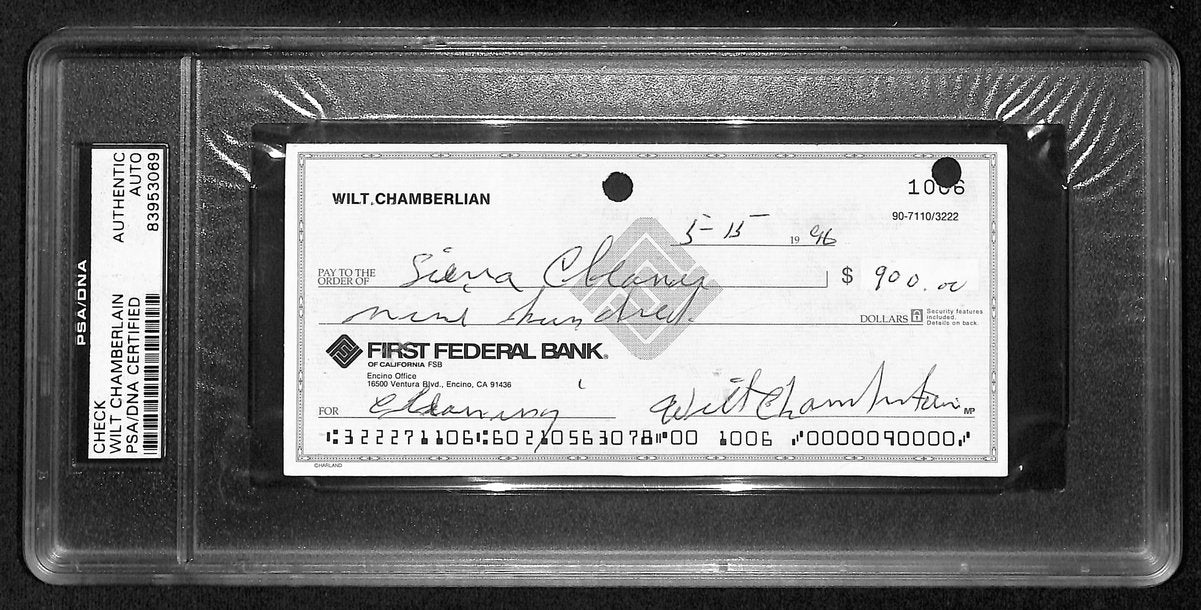 PSA/DNA
CHECK
WILT CHAMBERLAIN
PSA/DNA CERTIFIED
AUTHENTIC
AUTO
83953089
WILT.CHAMBERLIAN
1006
90-7110/3222
5-15 1996
PAY TO THE
ORDER OF Sierra Cleaners $ 900.00
nine hundred DOLLARS
Security features
included.
Details on back.
FIRST FEDERAL BANK®
OF CALIFORNIA FSB
Encino Office
16500 Ventura Blvd., Encino, CA 91436
FOR cleaning Wilt Chamberlain MP
⑆322271106⑆60210563078⑈00 1006 ⑇0000090000⑇
©HARLAND